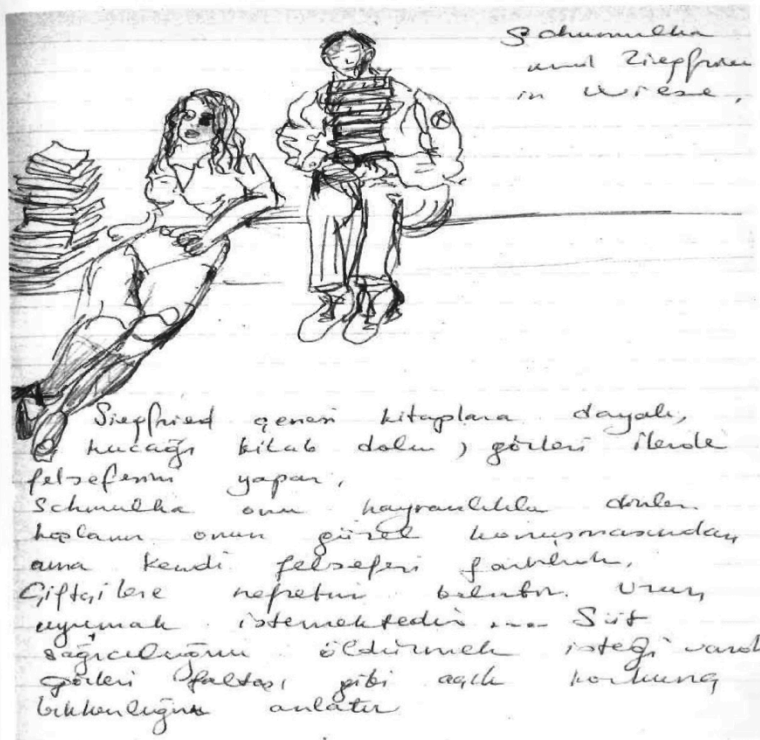 Schmulka
und Ziegfried
in Wiese,
Siegfried çenesi kitaplara dayalı,
kucağı kitab dolu, gözleri ilerde
felsefesini yapar,
Schmulka onu hayranlıkla dinler.
hoşlanır onun güzel konuşmasından,
ama kendi felsefesi farklıdır.
Çiftçilere nefretini belirtir. Uzun
uyumak istemektedir .... Süt
sağıcılığını öldürmek isteği vardır
gözleri faltaşı gibi açık korkunç
bıkkınlığını anlatır